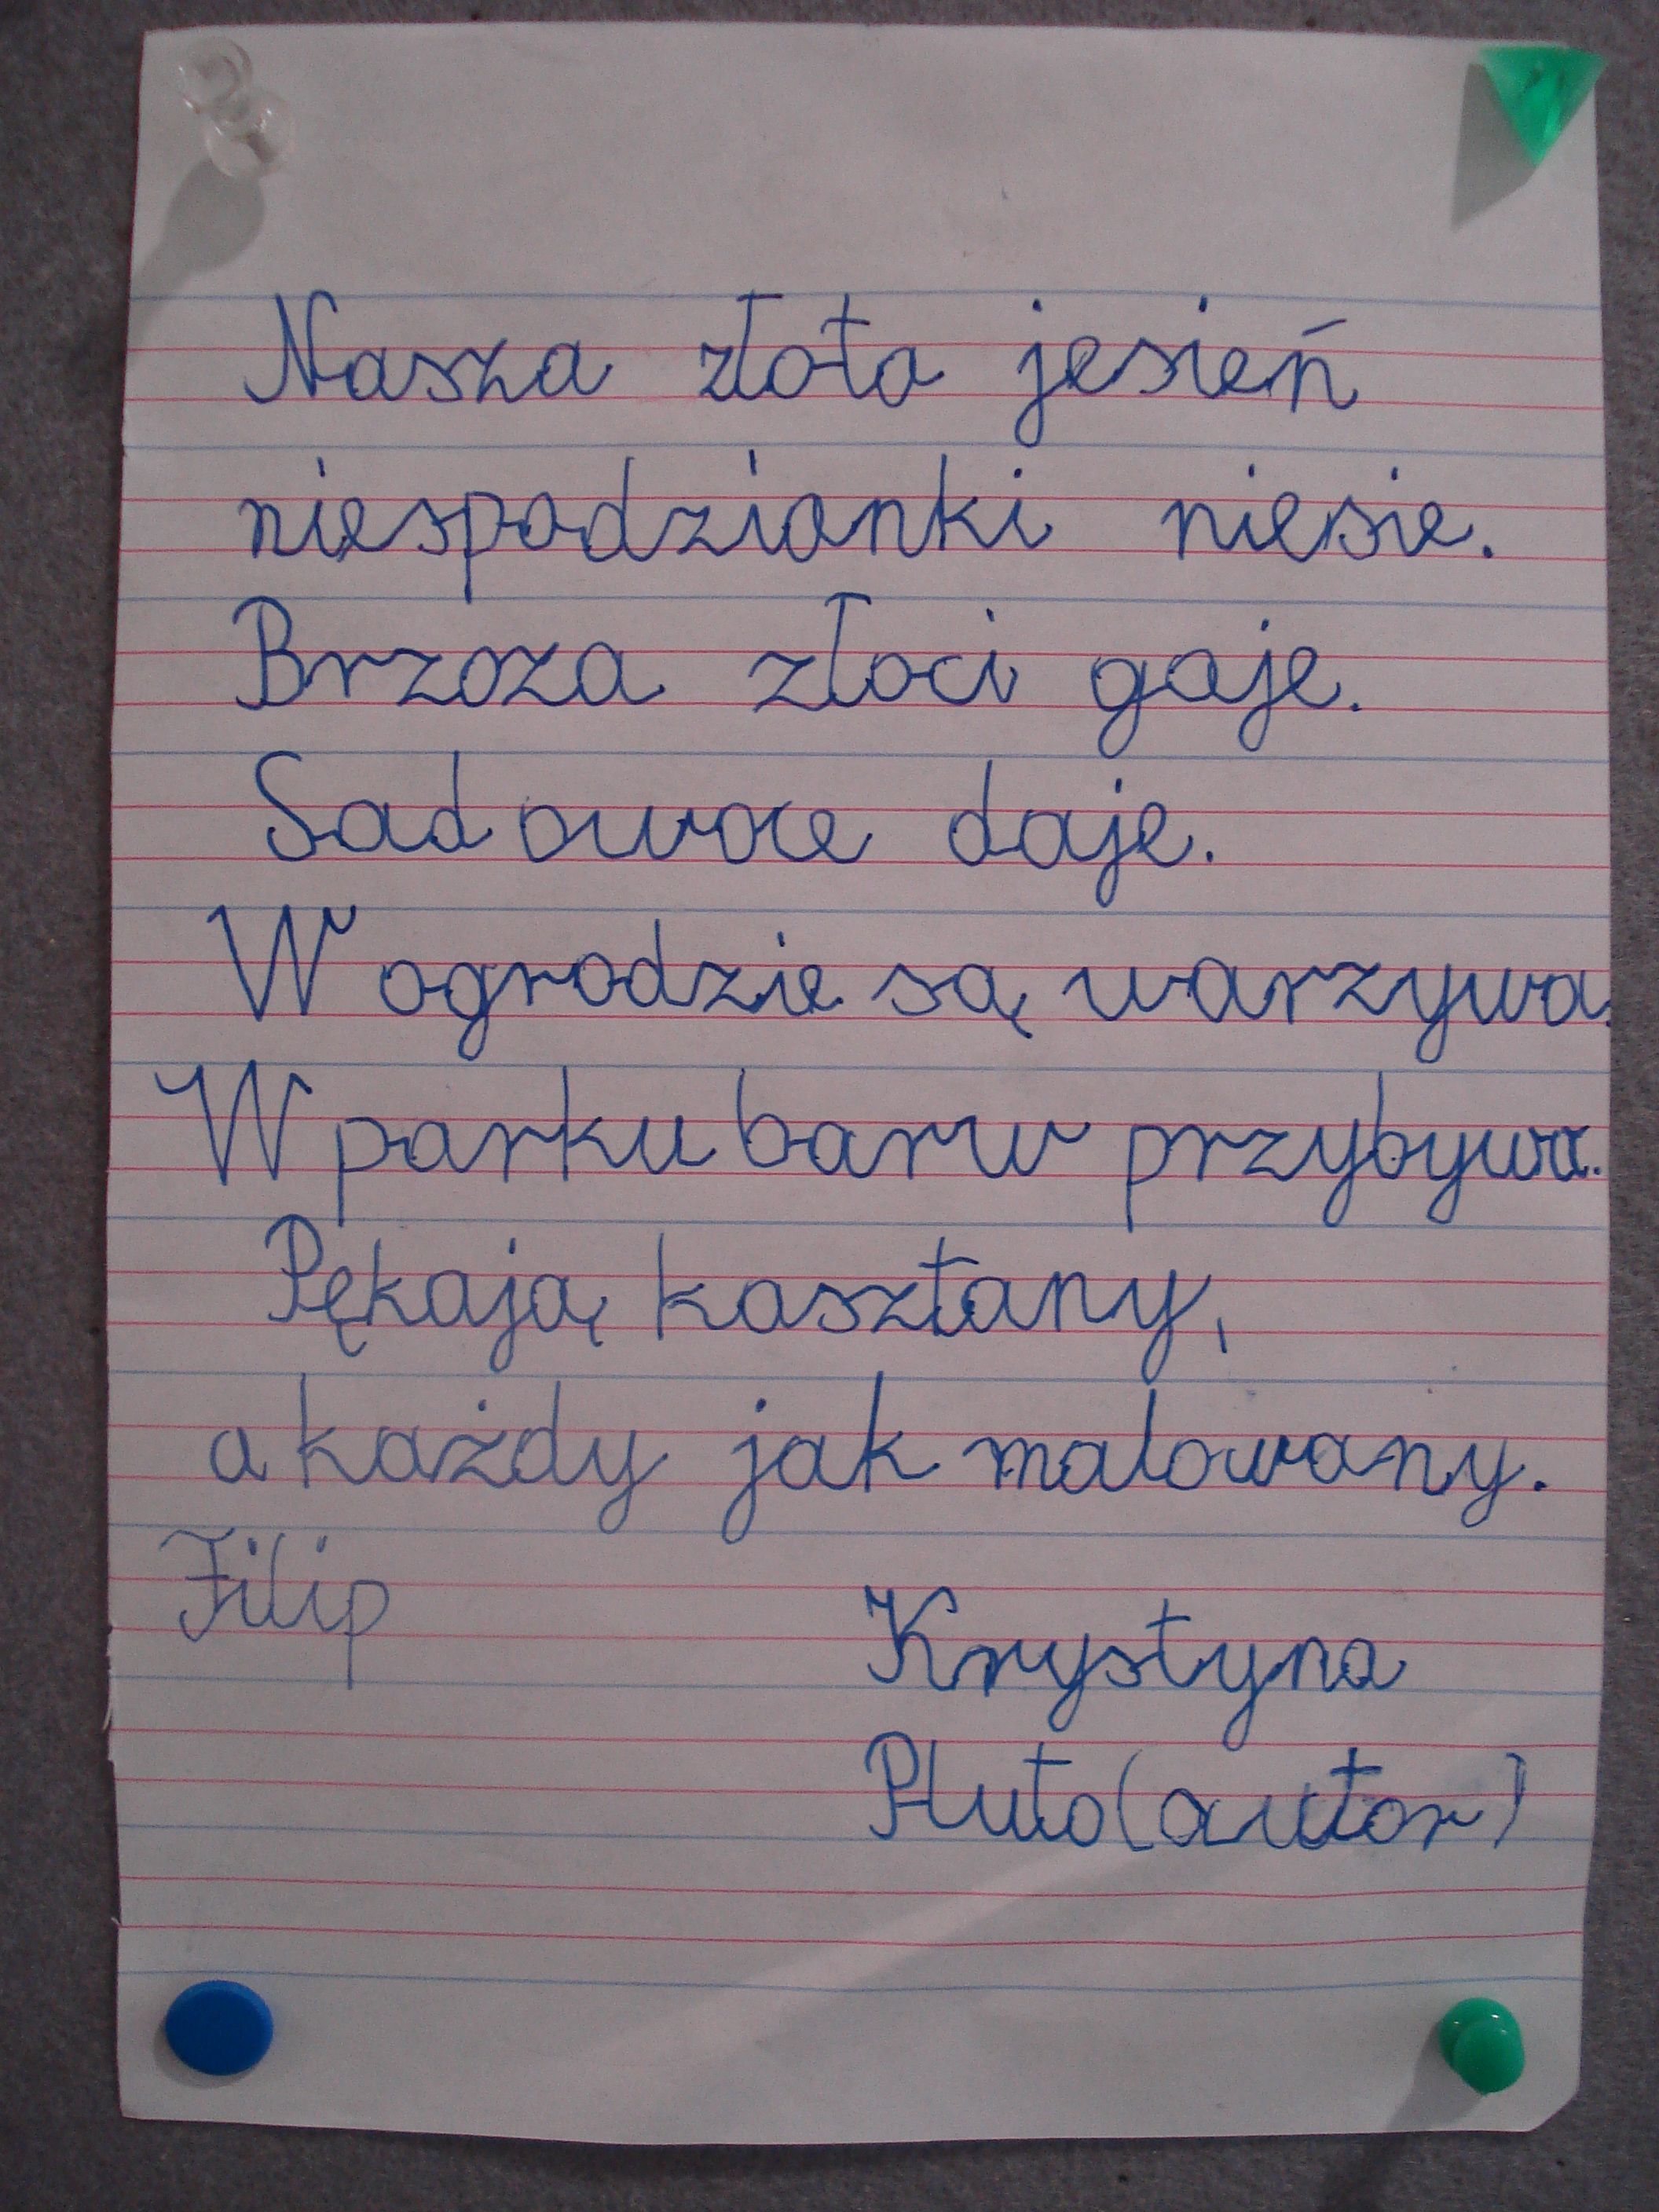 Nasza złota jesień
niespodzianki niesie.
Brzoza złoci gaje.
Sad owoce daje.
W ogrodzie są warzywa.
W parku barw przybywa.
Pękają kasztany,
a każdy jak malowany.
Filip
Krystyna
Pluto (autor)